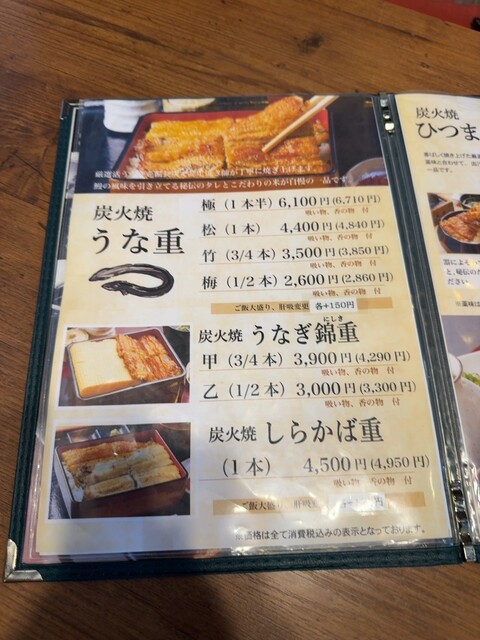 鰻の風味を引き立てる秘伝のタレとこだわりの米が自慢の一品です。
炭火焼
うな重
極（1本半）6,100円(6,710円)
吸い物、香の物 付
松（1本）4,400円(4,840円)
吸い物、香の物 付
竹（3/4本）3,500円(3,850円)
吸い物、香の物 付
梅（1/2本）2,600円(2,860円)
吸い物、香の物 付
ご飯大盛り、肝吸変更 各+150円
炭火焼 うなぎ錦重
にしき
甲（3/4本）3,900円(4,290円)
吸い物、香の物 付
乙（1/2本）3,000円(3,300円)
吸い物、香の物 付
炭火焼 しらかば重
（1本）4,500円(4,950円)
吸い物、香の物 付
ご飯大盛り、肝吸
※価格は全て消費税込みの表示となっております。
炭火焼
ひつま
一品です。